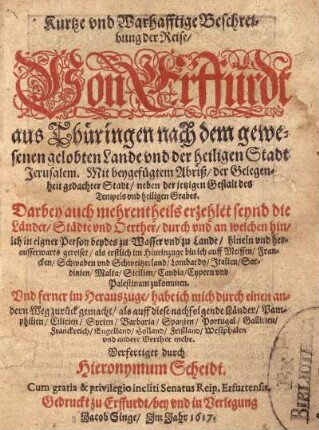 Kurtze vnd Warhafftige Beschrei-
bung der Reise/
Von Erffurdt
aus Thüringen nach dem gewe-
senen gelobten Lande vnd der heiligen Stadt
Jerusalem. Mit beygefügtem Abriß/ der Gelegen-
heit gedachter Stadt/ neben der jetzigen Gestalt des
Tempels vnd heiligen Grabes.
Darbey auch mehrentheils erzehlet seynd die
Länder/ Städte vnd Oerther/ durch vnd an welchen hin/
ich in eigner Person beydes zu Wasser vnd zu Lande/ hinein vnd her-
ausserwarts gereiset/ als erstlich im Hineinzuge bin ich auff Meissen/ Fran-
cken/ Schwaben vnd Schweitzerland/ Lombardy/ Italien/ Sar-
dinien/ Malta/ Sicilien/ Candia/ Cypern vnd
Palestinam zukommen.
Vnd ferner im Herauszuge/ habe ich mich durch einen an-
dern Weg zurück gemacht/ als auff diese nachfolgende Länder/ Pam-
philien/ Cilicien/ Syrien/ Barbaria/ Spanien/ Portugal/ Gallicien/
Franckreich/ Engelland/ Holland/ Frißland/ Westphalen
vnd andere Oerther mehr.
Verfertiget durch
Hieronymum Scheidt.
Cum gratia & privilegio incliti Senatus Reip. Erfurtensis.
Gedruckt zu Erffurdt/ bey vnd in Verlegung
Jacob Singe/ Im Jahr 1617.
BIBLIOT